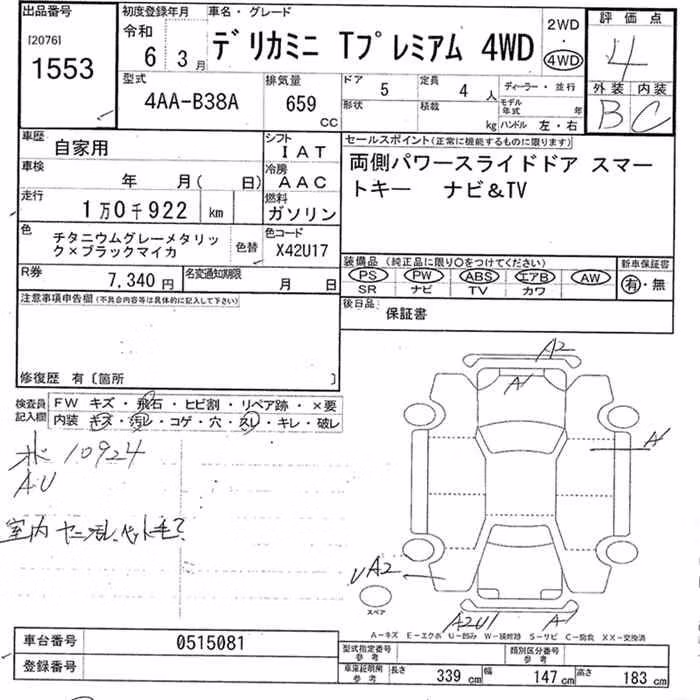 出品番号
[2076]
1553
初度登録年月
令和
6 3月
車名・グレード
デリカミニ Tプレミアム 4WD
2WD
・
4WD
評価点
4
外装 内装
B C
型式
4AA-B38A
排気量
659
CC
ドア 5
形状
定員 4 人
積載 kg
ディーラー・並行
モデル年式 年
ハンドル 左・右
車歴
自家用
シフト
IAT
車検
年 月( 日)
冷房
AAC
走行
1万0千922 km
燃料
ガソリン
色
チタニウムグレーメタリック×ブラックマイカ
色替
色コード
X42U17
R券
7,340円
名変通知期限
月 日
セールスポイント(正常に機能するものに限ります)
両側パワースライドドア スマー
トキー ナビ&TV
装備品 (純正品に限り○をつけてください)
新車保証書
PS PW ABS エアB AW
SR ナビ TV カワ
有・無
後日品
保証書
注意事項申告欄(不具合内容等は具体的に記入して下さい)
修復歴 有〔箇所 〕
検査員記入欄
FW キズ・飛石・ヒビ割・リペア跡・×要
内装 キズ・汚レ・コゲ・穴・スレ・キレ・破レ
10924
AU
室内
A2
A1
A
A2
U
スペア
A2U1
A
A－キズ E－エクボ U－凹み W－補修跡 S－サビ C－腐食 XX－交換済
車台番号
0515081
登録番号
型式指定番号
参考
類別区分番号
参考
車庫証明用
参考
長さ 339 cm 幅 147 cm 高さ 183 cm